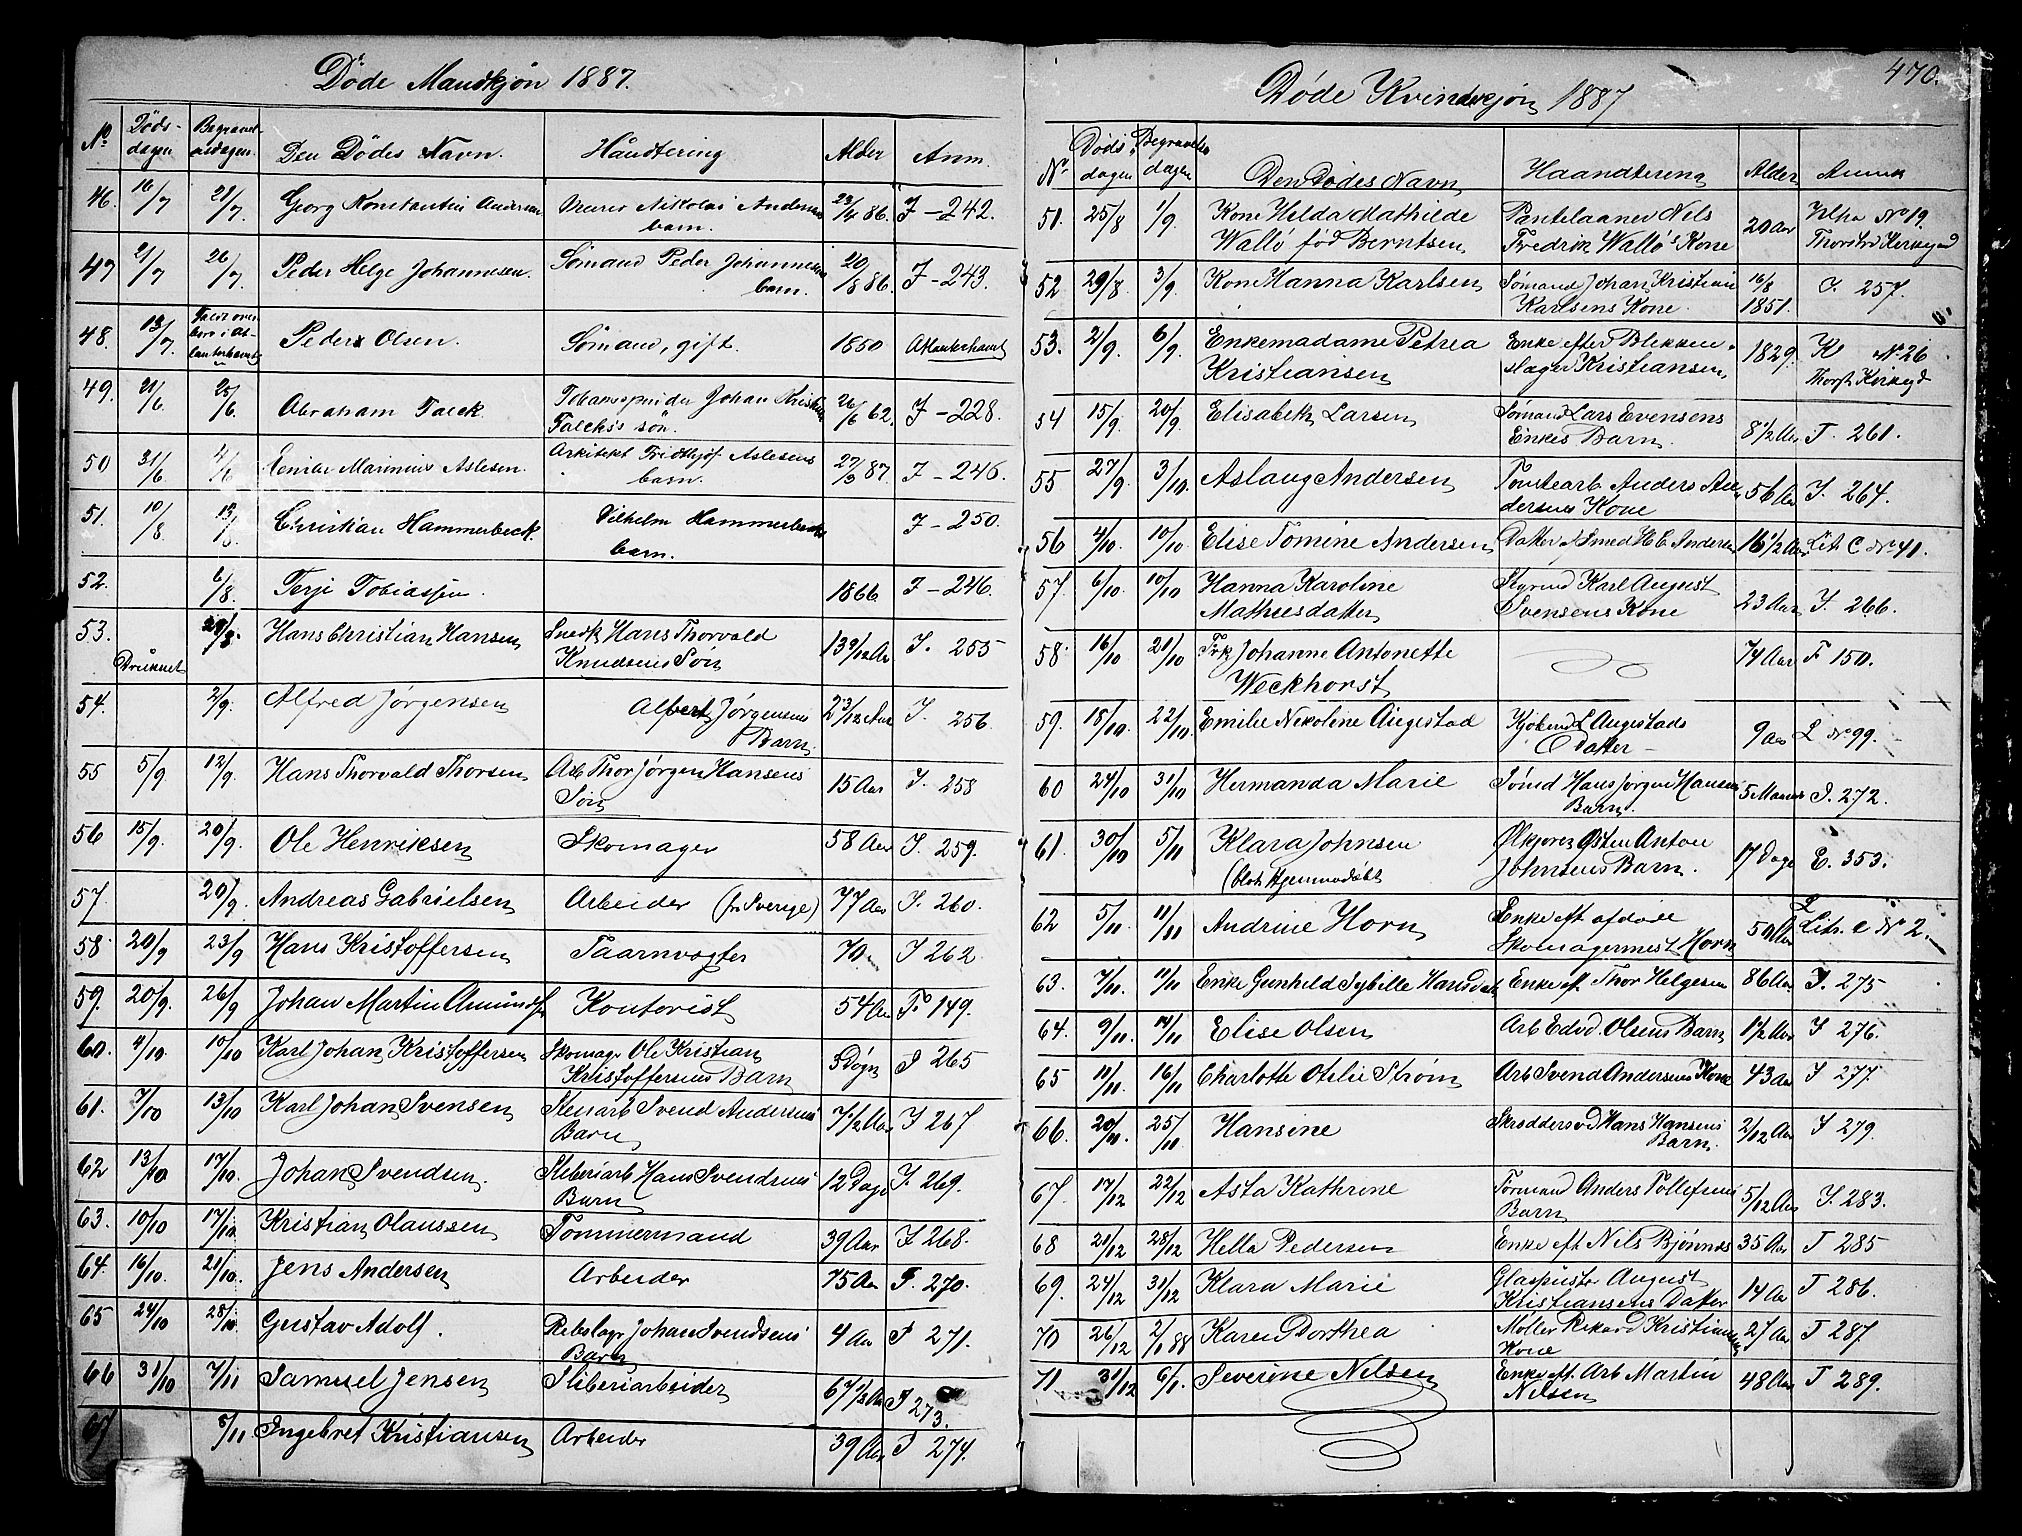 Døde Mandkjøn 1887.
No Døds-dagen Begravel-sesdagen. Den Dødes Navn. Håndtering Alder Anm.
46. 16/7 21/7. Georg Konstantin Andersen Nikolai Andersens barn. 23/4 86. J - 242.
47 21/7 26/7. Peder Helge Johannesen. Sømand Peder Johannesens barn. 20/8 86. J - 243.
48. 13/7. Peder Olsen. Sømand, gift. 1850 Atlanterhavet
49. 21/6. 25/6. Abraham Falck. Johan Falcks's søn. 26/6 62. J - 228.
50 31/6. Marinius Aslesen. Arkitekt Fridthjof Aslesens barn. 27/3 87. J - 246.
51. 10/8 13/8 Christian Hammerbeck. Vilhelm Hammerbecks barn. J - 250.
52. 6/8. Terje Tobiassen. 1866. J - 246.
53. Druknet Hans Christian Hansen Snedk Hans Thorvald Knudsens Søn 13 9/12 Aar J. 255
54. 2/9. Alfred Jørgensen Albert Jørgensens Barn. 2 3/12 Aar J. 256
55 5/9 12/9. Hans Thorvald Thorsen Arb Thor Jørgen Hansens Søn 15 Aar J. 258
56 15/9. 20/9. Ole Henriksen Skomager 58 Aar J. 259.
57. 20/9. Andreas Gabrielsen Arbeider (fr Sverige) 77 Aar J. 260.
58 20/9 23/9 Hans Kristoffersen Taarnvogter 70 J 262.
59. 20/9. 26/9 Johan Martin Amundsen Kontorist 54 Aar F. 149.
60. 4/10. 10/10 Karl Johan Kristoffersen Skomagr Ole Kristian Kristoffersens Barn 5 Døgn J 265
61. 7/10 13/10 Karl Johan Svensen Stenarb Svend Andersens Barn 7 1/2 Aar J 267
62 13/10 17/10. Johan Svendsen. Sliberiarb Hans Svendsens Barn 12 Dage J. 269.
63. 10/10 17/10 Kristian Olaussen Tømmermand 39 Aar J 268.
64. 16/10. 21/10. Jens Andersen Arbeider 75 Aar J. 270.
65 24/10 28/10. Gustav Adolf. Rebslagr Johan Svendsens Barn 4 Aar J 271.
66 31/10 7/11 Samuel Jensen Sliberiarbeider 67 1/2 Aar J 273.
67 5/11 Ingebret Kristiansen Arbeider 39 Aar J 274.
470.
Døde Kvindekjøn 1887
No Døds dagen Begravelses dagen Den Dødes Navn Haandtering Alder Anmk
51. 25/8 1/9. Kone Helda Mathilde Pantelaaner Nils 20 Aar No 19.
Wallø fød Berntsen Fredrik Wallø's Kone
52 29/8. 3/9. Kone Hanna Karlsen Sømand Johan Kristian 16/8 J. 257.
Karlsens Kone. 1851.
53. 2/9. 6/9. Enkemadame Petrea Enke efter Blikken- 1829. K No 26
Kristiansen slager Kristiansen Thorst Kirkegd
54 15/9. 20/9. Elisabeth Larsen Sømand Lars Evensens Enkes Barn. 8 1/2 Aar J. 261.
55 27/9 3/10. Aslaug Andersen Tomtearb Anders Andersens Kone 56 Aar J. 264.
56 4/10. 10/10. Elise Tomine Andersen Datter af Smed H C Andersen 16 1/2 Aar Lit. C No 41.
57. 6/10. 10/10 Hanna Karoline Karl August 23 Aar J. 266.
Mathiesdatter Svensens Kone
58. 16/10 21/10 Frk Johanne Antonette 74 Aar F 150.
Weckhorst
59. 18/10. 22/10 Emilie Nikoline Augestad Kjøbmd L Augestads Datter 9 Aar L No 99.
60 24/10 31/10 Hermanda Marie Sømd Hans Jørgen Hansens Barn. 5 Maaned J. 272.
61. 30/10 5/11 Klara Johnsen Ølkjører Østen Anton 17 Dage E. 353.
(blot Hjemmedøbt Johnsens Barn.
62 5/11 11/11 Andrine Horn Enke eft afdøde 50 Aar Litr. C No 2.
Skomagermest Horn
63. 7/11. 11/11 Enke Gunhild Sybille Hansdatt Enke eft Thor Helgesen 86 Aar. J. 275
64. 9/11 14/11 Elise Olsen Arb Edvd. Olsens Barn 1 1/2 Aar J 276.
65 11/11 16/11 Charlotte Otilie Strøm Arb Svend Andersens Kone 43 Aar J 277.
66. 20/11. 25/10 Hansine Skræddersvd Hans Hansens Barn. 2/12 Aar J 279.
67. 17/12 22/12 Asta Kathrine Formand Anders Tollefsens Barn 5/12 Aar J. 283.
68 21/12 28/12 Hella Pedersen Enke eft Nils Bjønnes 35 Aar J 285
69. 24/12 31/12 Klara Marie Glaspuster August Kristiansens Datter 14 Aar J 286.
70 26/12 2/1 88 Karen Dorthea Møller Rikard Kristiansens Kone 27 Aar J 287.
71 31/12 6/1. Severine Nilsen Enke eft. Arb Martin Nilsen 48 Aar J 289.